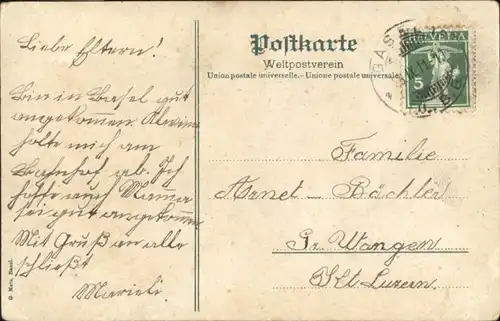 Postkarte
Weltpostverein
Union postale universelle. – Unione postale universale.
HELVETIA
5
BAS
Liebe Eltern!
Bin in Basel gut
angekommen.
holte mich am
Bahnhof ab. Ich
hoffe auch Mamma
sei gut angekommen
Mit Gruß an alle
schließt
Marieli
Familie
Arnet – Bächler
Gr. Wangen
Kt. Luzern
G. Metz, Basel.